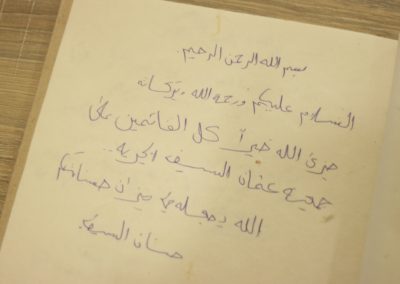 بسم الله الرحمن الرحيم.
السلام عليكم ورحمة الله وبركاته
جزى الله خيراً كل القائمين على
جمعية عمان السيف الخيرية..
الله يجعله في ميزان حسناتكم
حسان السيف